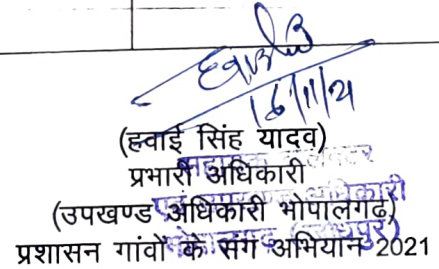 16/11/21
(हवाई सिंह यादव)
प्रभारी अधिकारी
(उपखण्ड अधिकारी भोपालगढ)
प्रशासन गांवों के संग अभियान 2021